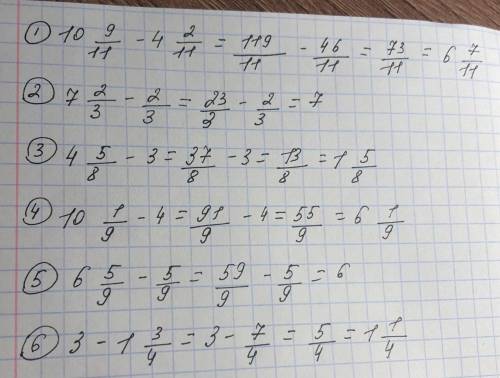 ① 10 9/11 - 4 2/11 = 119/11 - 46/11 = 73/11 = 6 7/11
② 7 2/3 - 2/3 = 23/3 - 2/3 = 7
③ 4 5/8 - 3 = 37/8 - 3 = 13/8 = 1 5/8
④ 10 1/9 - 4 = 91/9 - 4 = 55/9 = 6 1/9
⑤ 6 5/9 - 5/9 = 59/9 - 5/9 = 6
⑥ 3 - 1 3/4 = 3 - 7/4 = 5/4 = 1 1/4